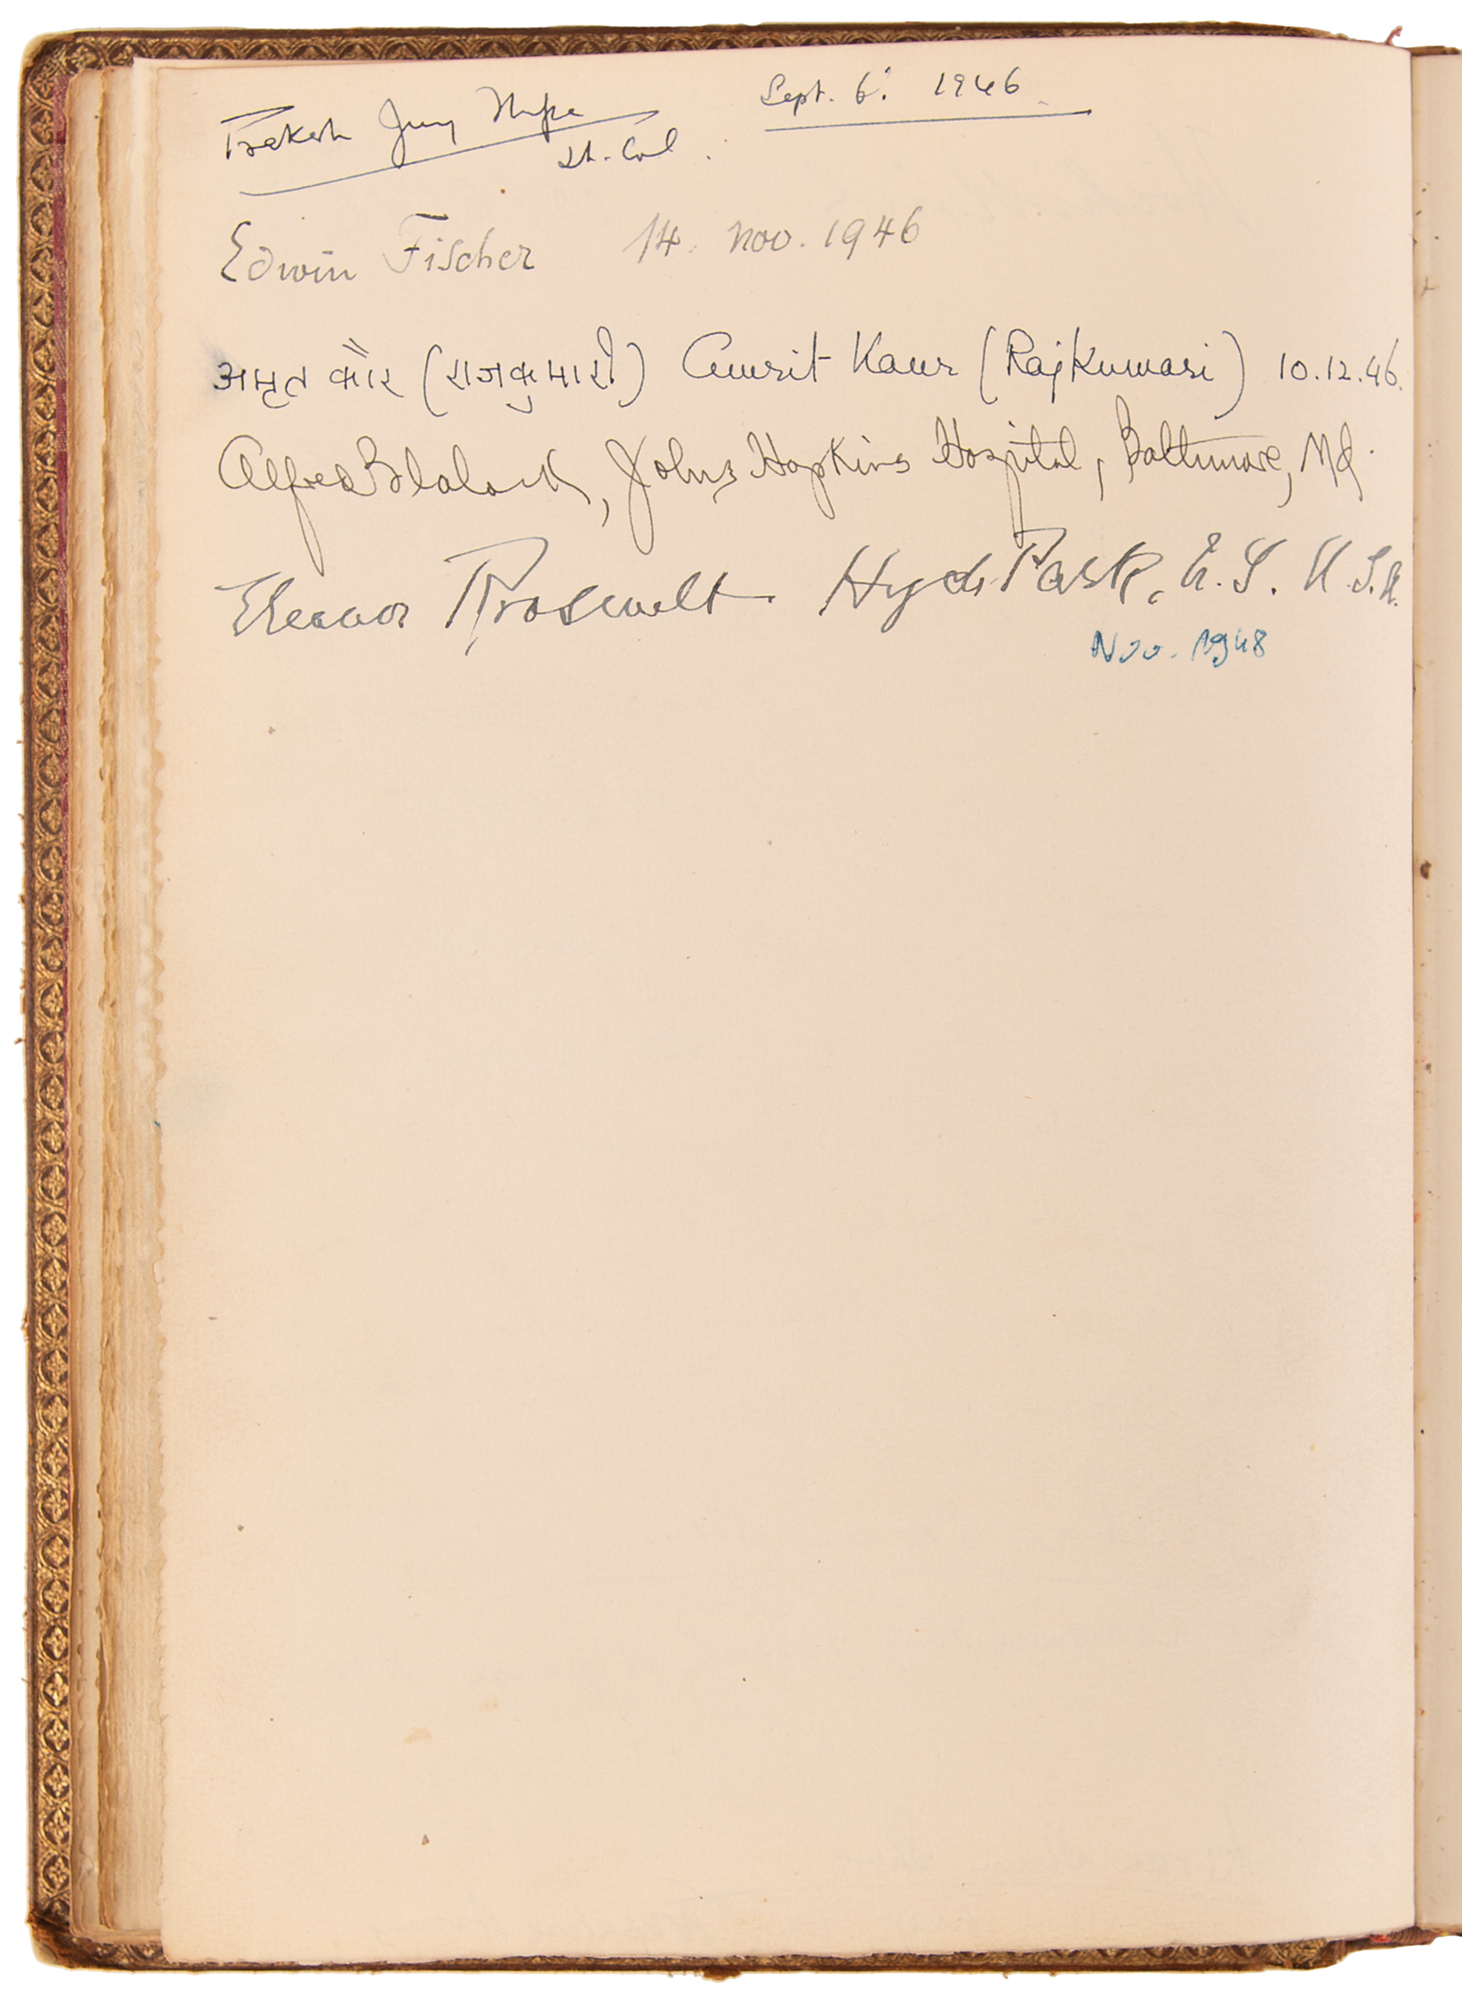 Prekesh Jung Sept. 6. 1946
Lt. Col.
Edwin Fischer 14. Nov. 1946
अमृत कौर (राजकुमारी) Amrit Kaur (Rajkumari) 10.12.46.
Alfred Blalock, Johns Hopkins Hospital, Baltimore, Md.
Eleanor Roosevelt Hyde Park, N.Y. U.S.A.
Nov. 1948